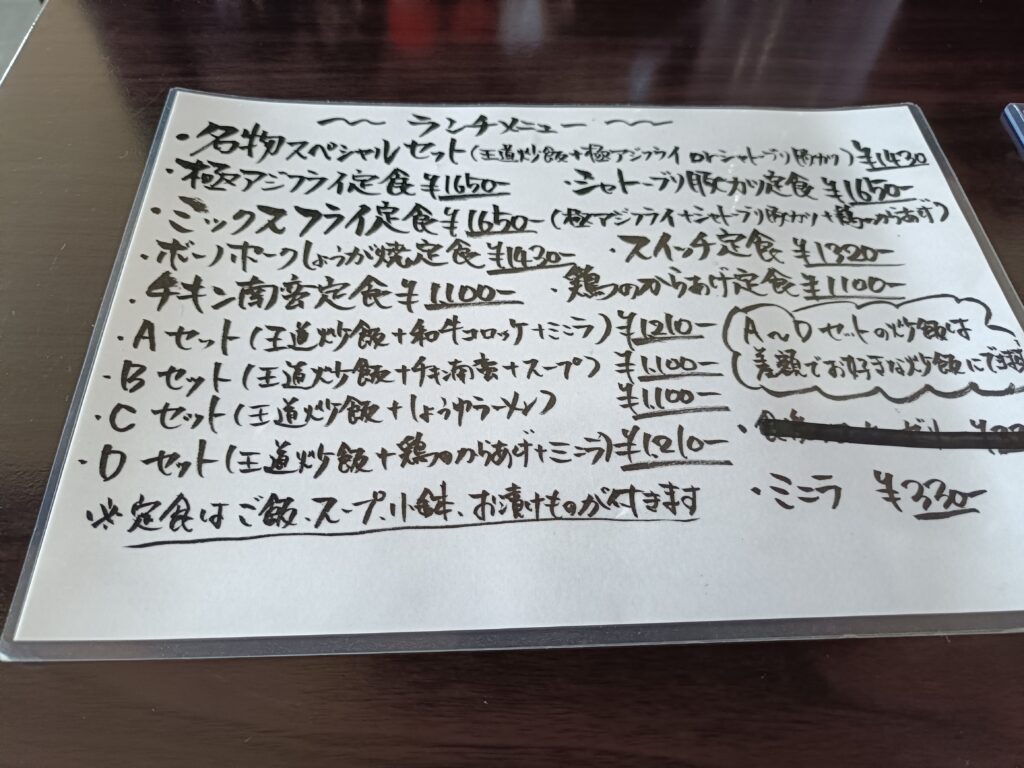 ～ ランチメニュー ～
・名物スペシャルセット(王道炒飯+極アジフライ orシャトーブリ豚カツ)¥1430
・極アジフライ定食¥1650- ・シャトーブリ豚カツ定食¥1650-
・ミックスフライ定食¥1650-(極アジフライ+シャトーブリ豚カツ+鶏のからあげ)
・ボーノポークしょうが焼定食¥1430- ・スイッチ定食¥1320-
・チキン南蛮定食¥1100- ・鶏のからあげ定食¥1100-
・Aセット(王道炒飯+和牛コロッケ+ミニラ)¥1210-
・Bセット(王道炒飯+チキ南蛮+スープ)¥1100-
・Cセット(王道炒飯+しょうゆラーメン)¥1100-
・Dセット(王道炒飯+鶏のからあげ+ミニラ)¥1,210-
※定食はご飯、スープ、小鉢、お漬けものが付きます
A～Dセットの炒飯は
差額でお好きな炒飯にでき
・ミニラ ¥330-